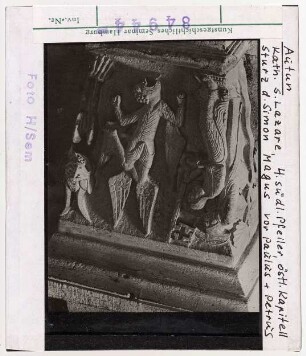 Kunstgeschichtliches Seminar Hamburg
Inv.-Nr.
Foto H/Sem
Autun
Kath. S. Lazare 4. südl. Pfeiler, östl. Kapitell
Sturz d Simon Magus vor Paulus + Petrus